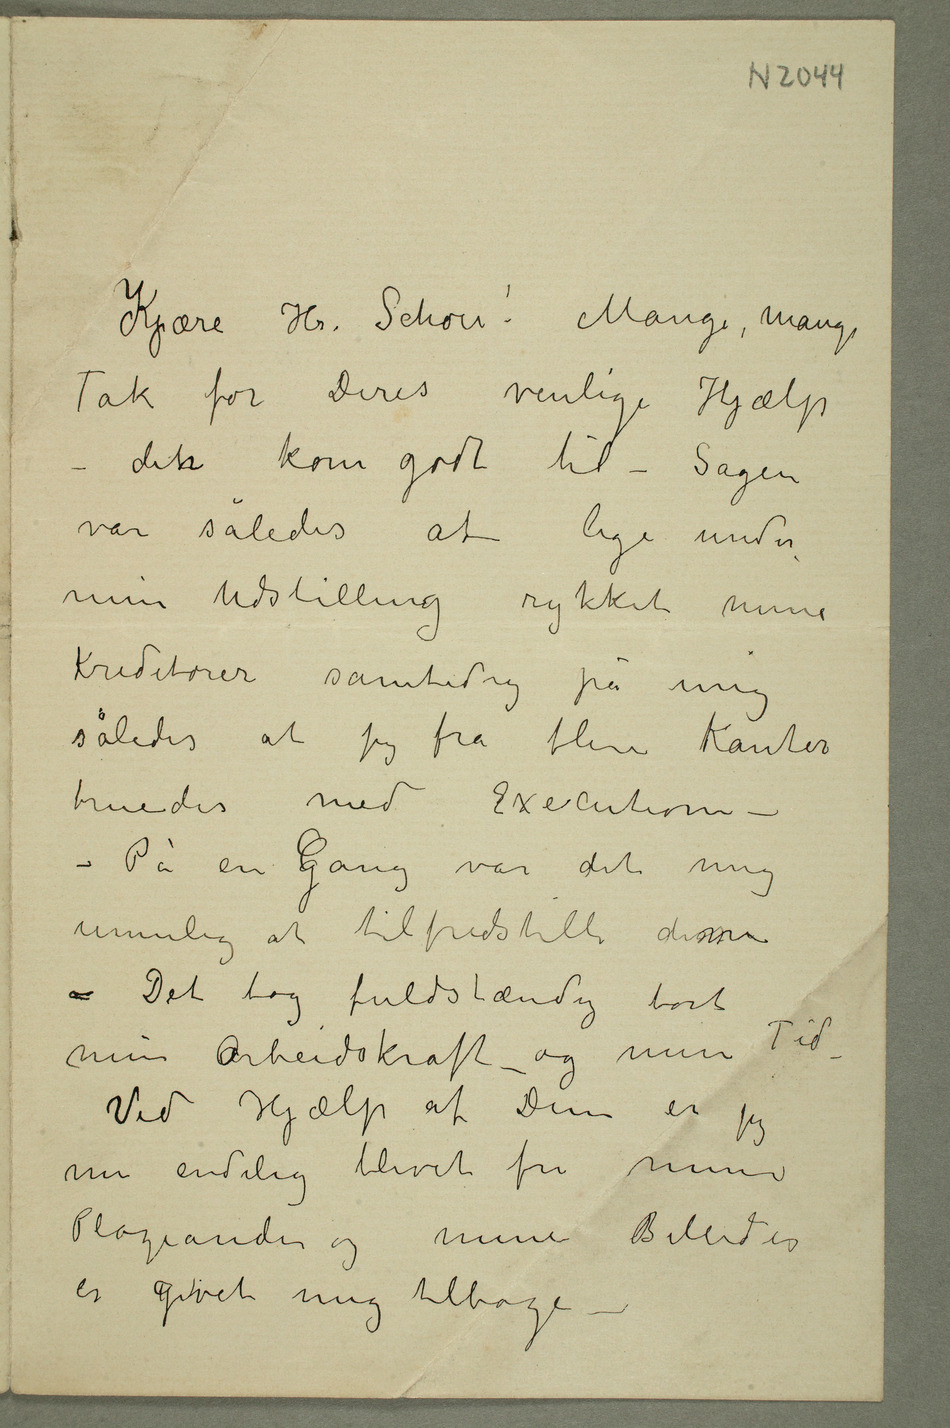 N 2044
Kjære Hr. Schou! Mange, mange
Tak for Deres venlige Hjælp
– den kom godt til – Sagen
var således at lige under
min Udstilling rykket mine
Kreditorer samtidig på mig
således at jeg fra flere Kanter
truedes med Execution –
– På en Gang var det mig
umulig at tilfredstille dem
– Det tog fuldstændig bort
min Arbeidskraft – og min Tid –
Ved Hjælp af Dem er jeg
nu endelig blevet fri mine
Plageander og mine Billeder
er givet mig tilbage –